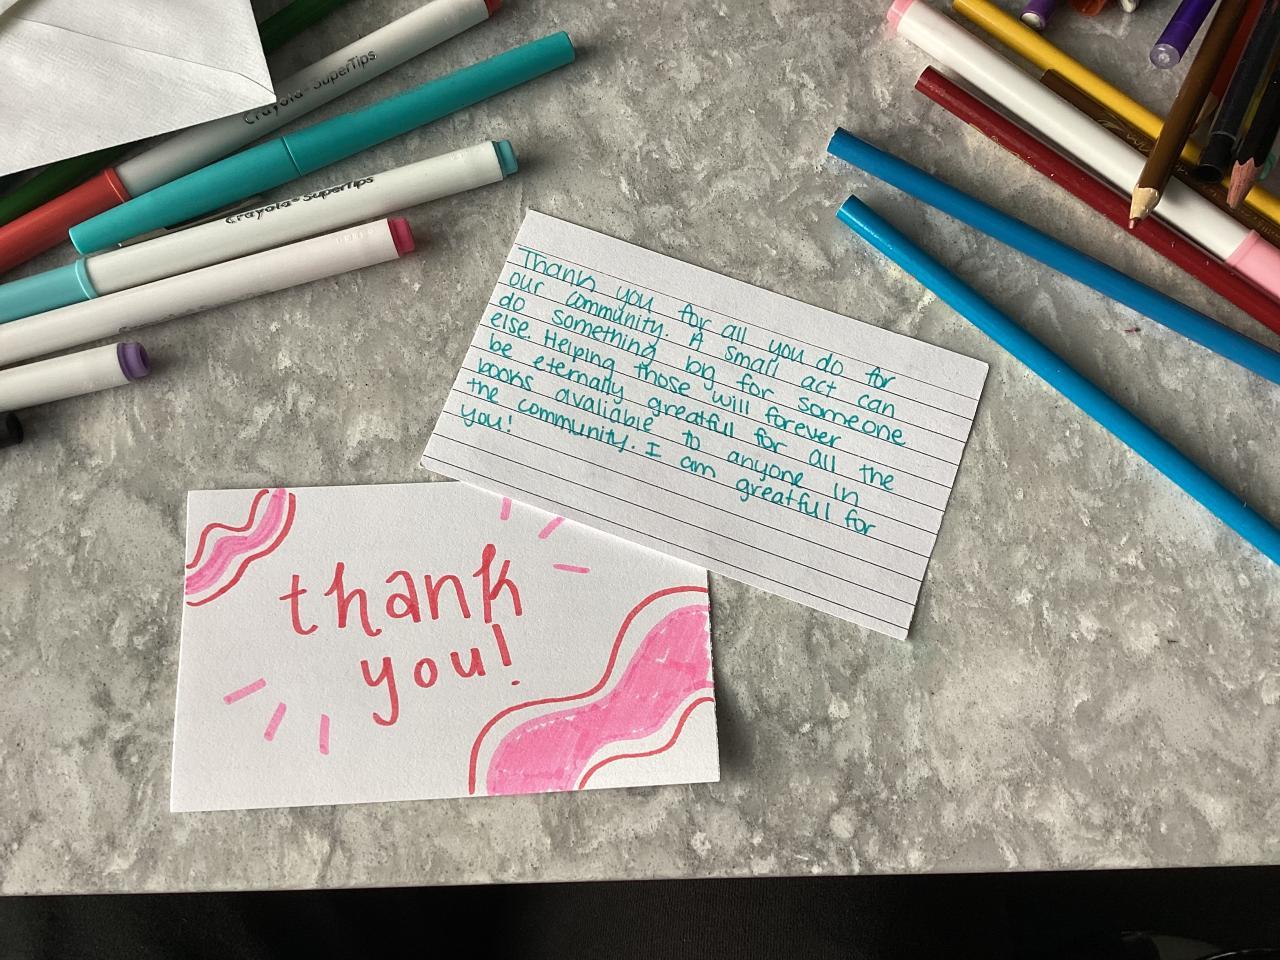 Crayola SuperTips
Crayola SuperTips
Thank you for all you do for
our community. A small act can
do something big for someone
else. Helping those will forever
be eternally greatful for all the
books avaliable to anyone in
the community. I am greatful for
you!
thank
you!